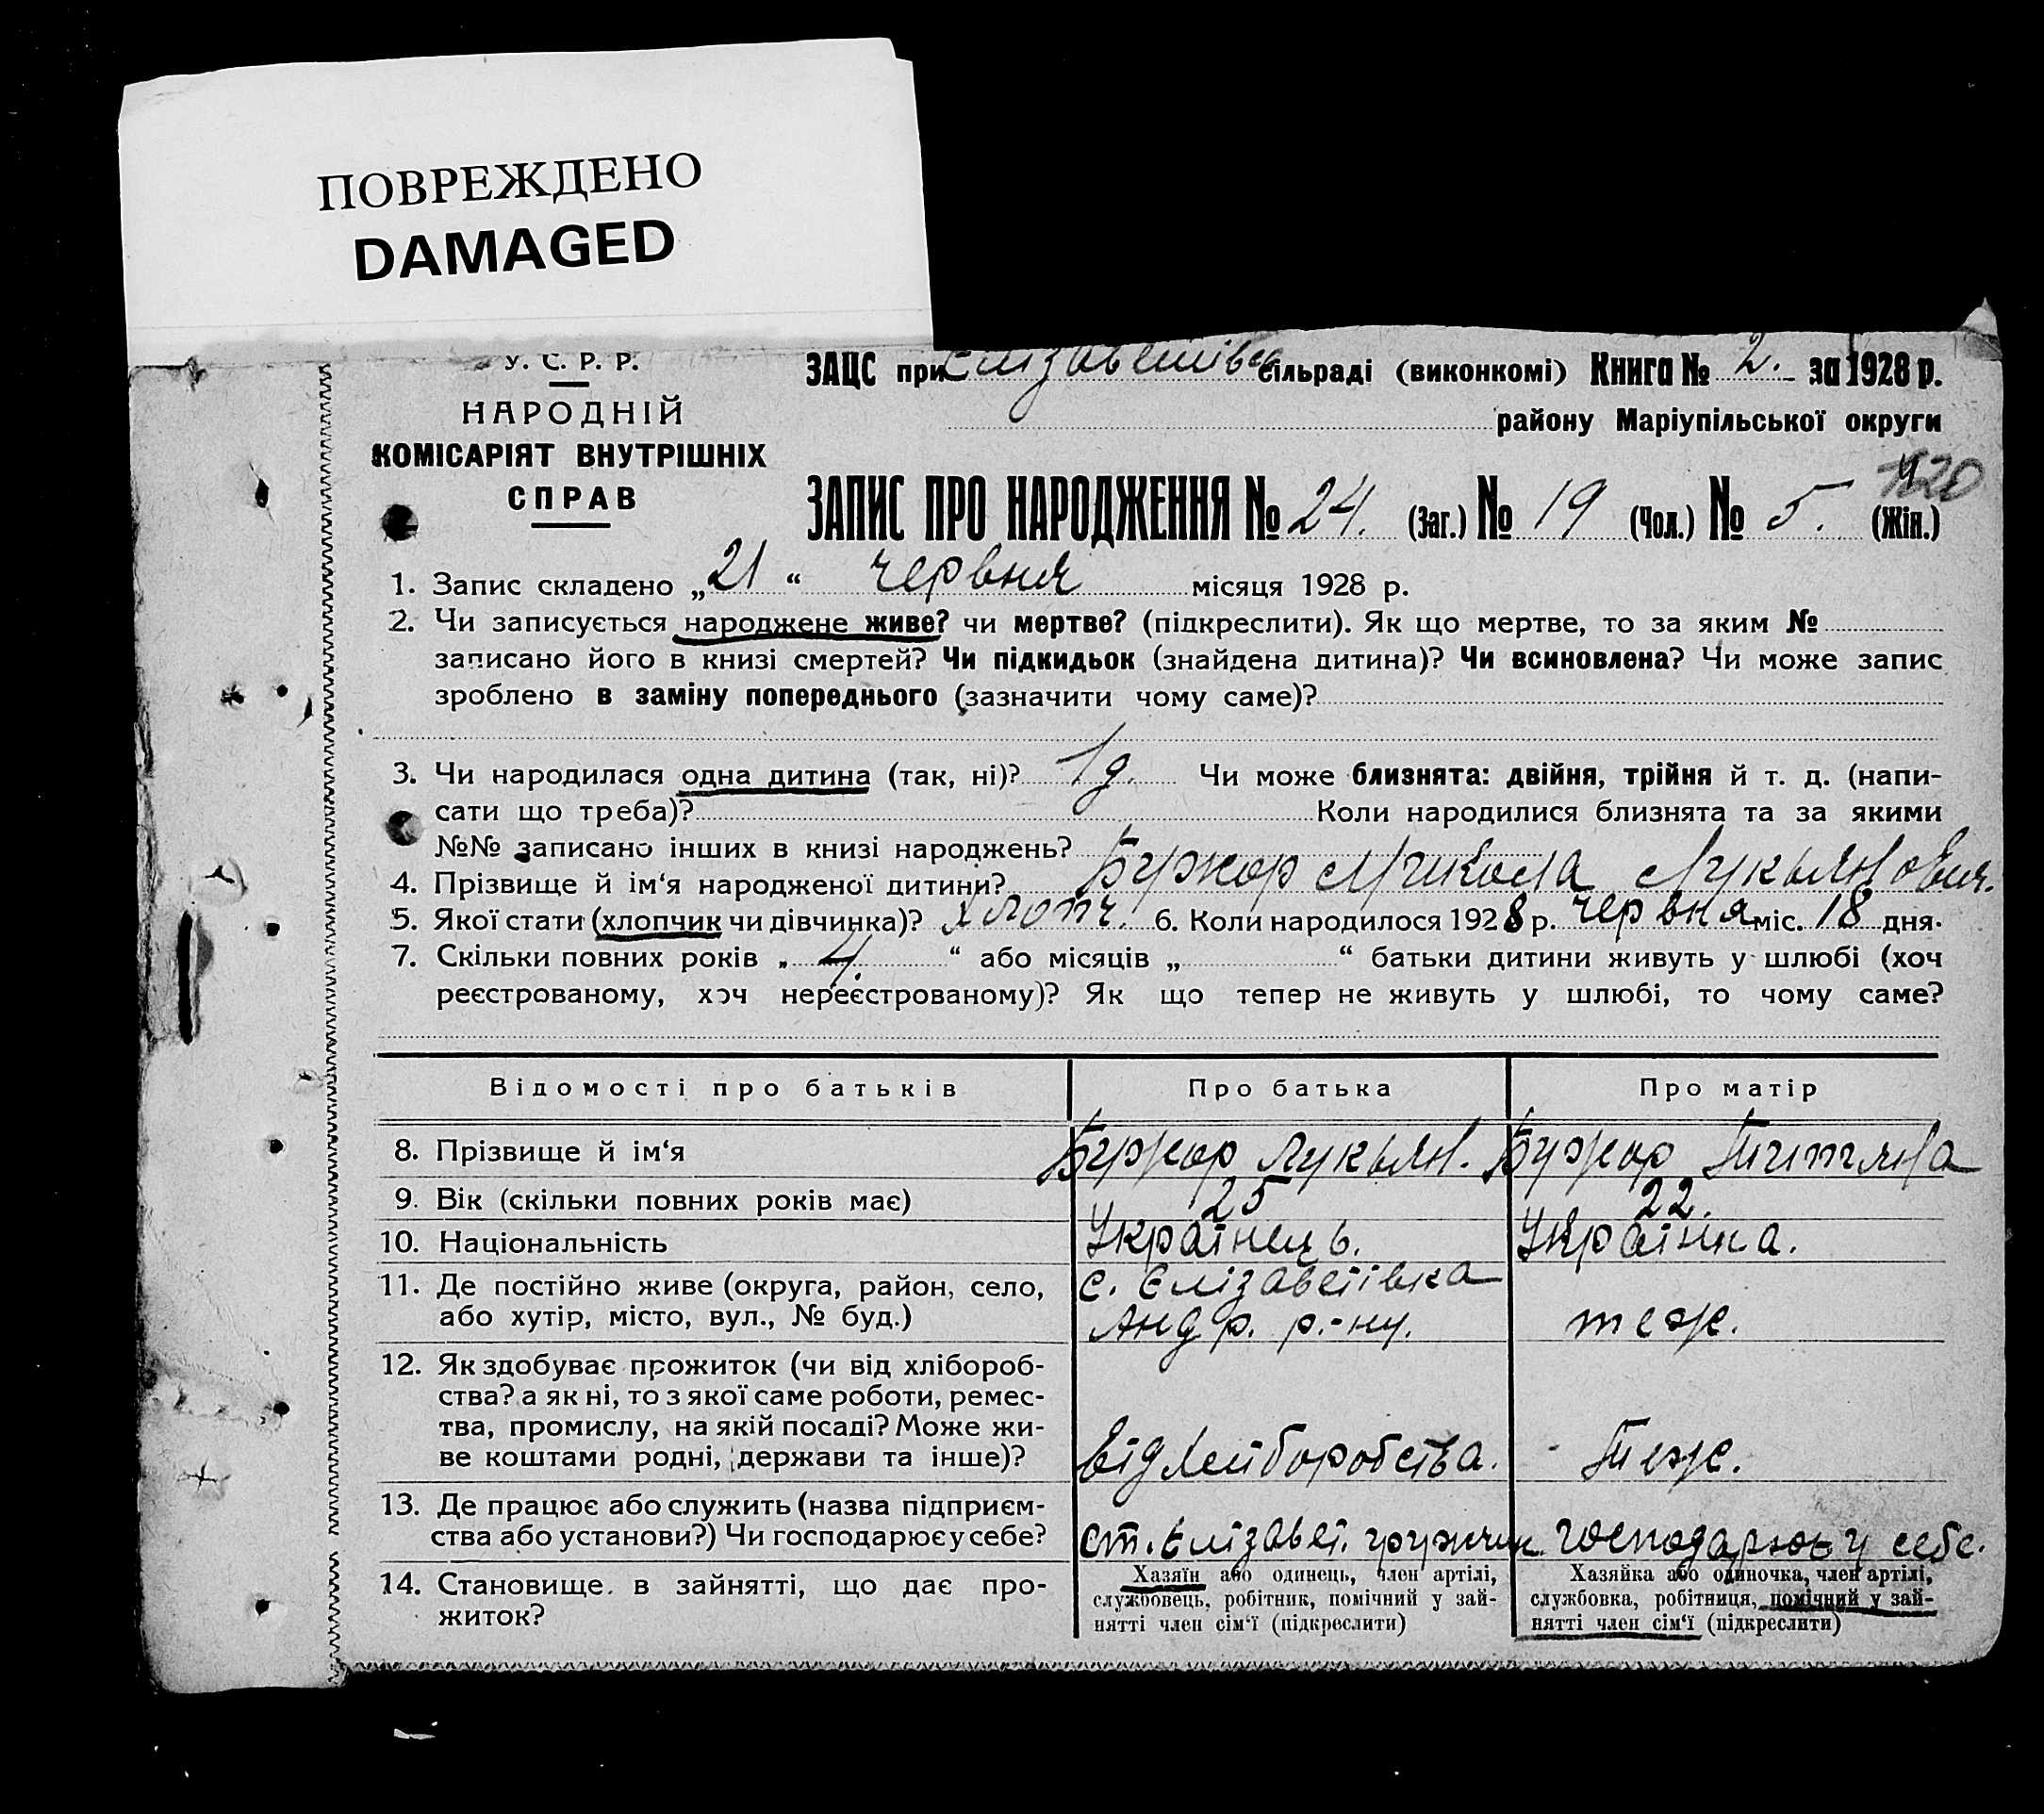 ПОВРЕЖДЕНО
DAMAGED
У. С. Р. Р.
НАРОДНІЙ
КОМІСАРІЯТ ВНУТРІШНІХ
СПРАВ
ЗАЦС при Єлізаветівск сільраді (виконкомі) Книга № 2. за 1928 р.
району Маріупільської округи
120
ЗАПИС ПРО НАРОДЖЕННЯ № 24. (Заг.) № 19 (Чол.) № 5. (Жін.)
1. Запис складено „21“ червня місяця 1928 р.
2. Чи записується народжене живе? чи мертве? (підкреслити). Як що мертве, то за яким №
записано його в книзі смертей? Чи підкидьок (знайдена дитина)? Чи всиновлена? Чи може запис
зроблено в заміну попереднього (зазначити чому саме)?
3. Чи народилася одна дитина (так, ні)? 1 д. Чи може близнята: двійня, трійня й т. д. (напи-
сати що треба)? Коли народилися близнята та за якими
№№ записано інших в книзі народжень?
4. Прізвище й ім‘я народженої дитини? Бужор Микола Лукьянович.
5. Якої стати (хлопчик чи дівчинка)? Хлопч. 6. Коли народилося 1928 р. червня міс. 18 дня.
7. Скільки повних років „ 4. “ або місяців „ “ батьки дитини живуть у шлюбі (хоч
реєстрованому, хоч нереєстрованому)? Як що тепер не живуть у шлюбі, то чому саме?
Відомості про батьків Про батька Про матір
8. Прізвище й ім‘я Бужор Лукьян. Бужор Титяна
9. Вік (скільки повних років має) 25 22.
10. Національність Українець. Українка.
11. Де постійно живе (округа, район, село, с. Єлізаветівка
або хутір, місто, вул., № буд.) Андр. р.-ну. теж.
12. Як здобуває прожиток (чи від хлібороб-
ства? а як ні, то з якої саме роботи, ремес-
тва, промислу, на якій посаді? Може жи-
ве коштами родні, держави та інше)? від хлиборобства. Теж.
13. Де працює або служить (назва підприєм-
ства або установи?) Чи господарює у себе? ст. Єлізавет. господарює у себе.
14. Становище в зайнятті, що дає про-
житок?
Хазяїн або одинець, член артілі,
службовець, робітник, помічний у зай-
нятті член сім‘ї (підкреслити)
Хазяйка або одиночка, член артілі,
службовка, робітниця, помічний у зай-
нятті член сім‘ї (підкреслити)